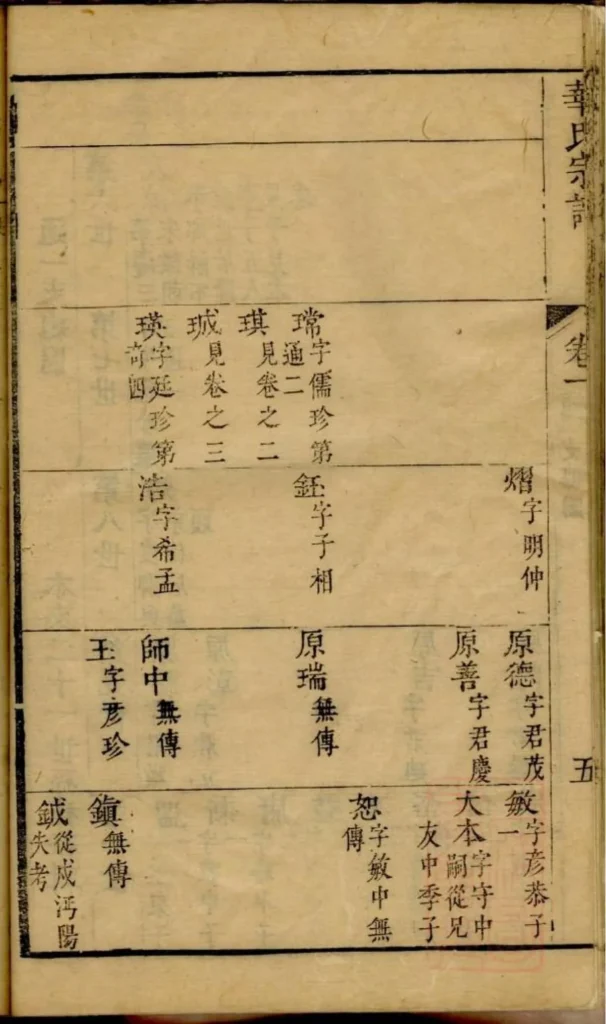 華氏宗譜
卷一
五
瑺字儒珍第
通二
琪見卷之二
珹見卷之三
瑛字廷珍第
奇四
熠字明仲
鈺字子相
浩字希孟
原德字君茂
原善字君慶
原瑞無傳
師中無傳
玉字彥珍
敏字彥恭子
一
大本字守中
嗣從兄
友中季子
恕字敏中無
傳
鎮無傳
鉞從戍沔陽
失考